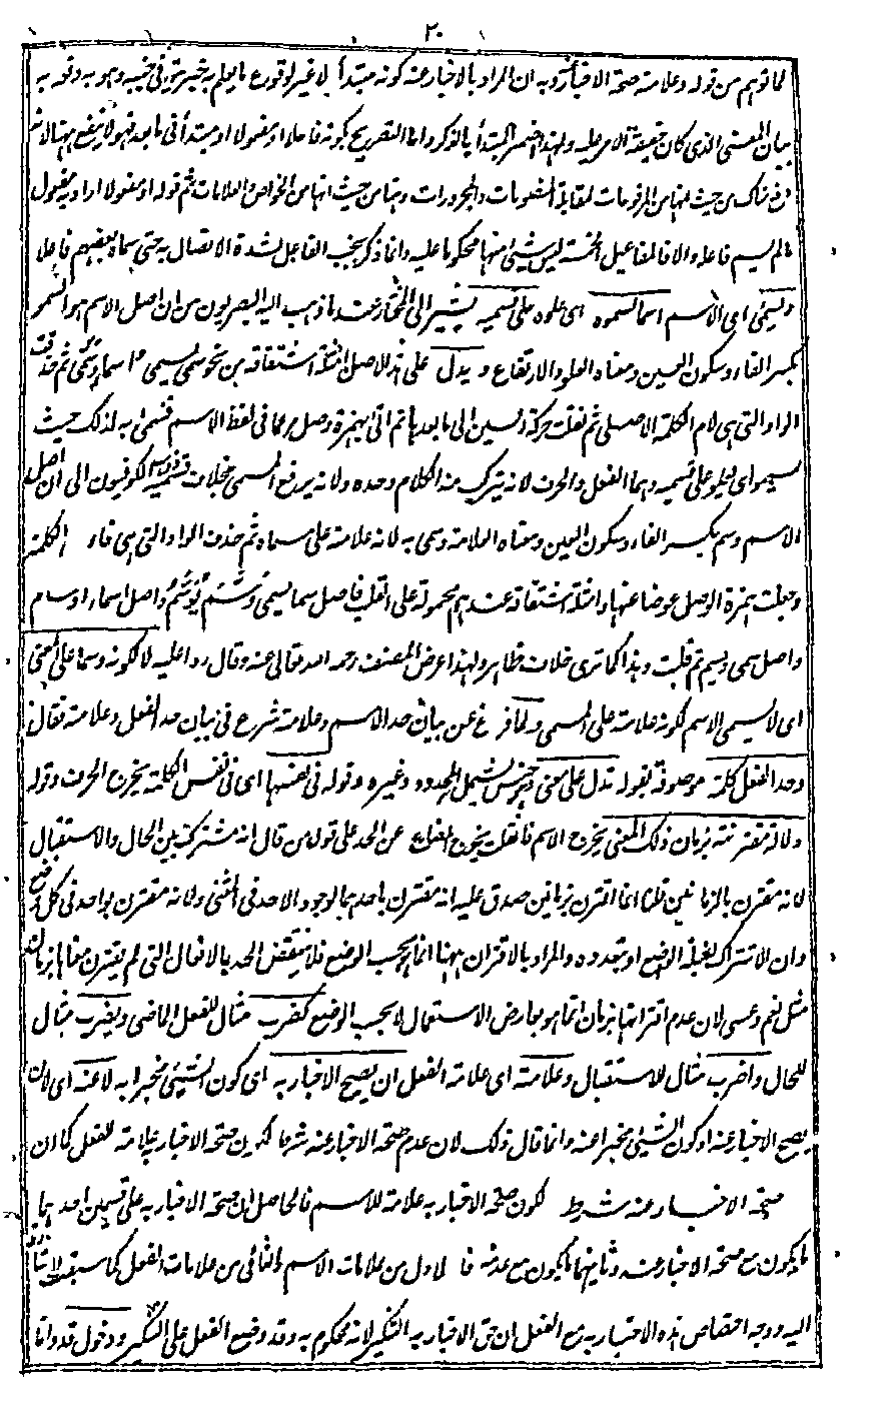 ٢٠
لما توهم من قوله وعلامته صحة الاخبار عنه وبه ان المراد بالاخبار عنه كونه مبتدأ لا غير لوقوع ما يعلم به خبريته في جنبه وهو به وقوله به
بيان المعنى الذى كان حقيقة الامر عليه ولهذا المبتدأ بالذكر واما التصريح بكونه فاعلا او مفعولا او مبتدأ فى ما بعد فهو لا ينفع ههنا لانه
هناك من حيث انها من المرفوعات لمقابلة المنصوبات والمجرورات وههنا من حيث انها من الخواص والعلامات ثم قوله او مفعولا اراد به مفعول
مالم يسم فاعله والا فالمفاعيل الخمسة ليس شئ منها محكوما عليه وانما ذكر بجنب الفاعل لشدة الاتصال به حتى سماه بعضهم فاعلا
ويسمى اى الاسم اسما لسموه اى علوه على قسيميه يشير الى المختار عنده ما ذهب اليه البصريون من ان اصل الاسم هو السمو
بكسر الفاء وسكون العين ومعناه العلو والارتفاع ويدل على هذا الاصل امثلة اشتقاقه من نحو سمى يسمى اسماء وسمى ثم حذفت
الواو التى هى لام الكلمة الاصلى ثم نقلت حركة السين الى ما بعدها ثم اتى بهمزة وصل مما فى لفظ الاسم فسمى به لذلك حيث
يسمو اى يعلو على قسيميه وهما الفعل والحرف لانه يتركب منه الكلام وحده ولانه يرفع المسمى بخلاف قسيميه وذهب الكوفيون الى ان اصل
الاسم وسم بكسر الفاء وسكون العين ومعناه العلامة وسمى به لانه علامة على مسماه ثم حذفت الواو التى هى فاء الكلمة
وجعلت همزة الوصل عوضا عنها وامثلة اشتقاقه عندهم محمولة على القلب فاصل سما يسمى وسم يوسم واصل اسماء اوسام
واصل سمى وسيم ثم قلبت وهذا كما ترى خلاف ظاهر ولهذا اعرض المصنف رحمه الله تعالى عنه وقال ردا عليه لا لكونه وسما على المعنى
اى لا يسمى الاسم لكونه علامة على المسمى ولما فرغ عن بيان حد الاسم وعلامته شرع فى بيان حد الفعل وعلامته فقال
وحد الفعل كلمة موصوفة بقوله تدل على معنى جنس يشمل المحدود وغيره وقوله فى نفسها اى فى نفس الكلمة يخرج الحرف وقوله
دلالة مقترنة بزمان ذلك المعنى يخرج الاسم فان قلت يخرج المضارع عن الحد على قول من قال انه مشترك بين الحال والاستقبال
لانه مقترن بالزمانين قلنا اذا اقترن بزمانين صدق عليه انه مقترن باحدهما لوجود الاحد فى المثنى ولانه مقترن بواحد فى كل وضع
وان الاشتراك لغفلة الوضع او تعدده والمراد بالاقتران ههنا انما هو بحسب الوضع فلا ينتقض الحد بالافعال التى لم يقترن معناها بزمان
مثل نعم وعسى لان عدم اقترانها بزمان انما هو بعارض الاستعمال لا بحسب الوضع كضرب مثال للفعل الماضى ويضرب مثال
للحال واضرب مثال للاستقبال وعلامته اى علامة الفعل ان يصح الاخبار به اى كون الشئ مخبرا به لا عنه اى لا ان
يصح الاخبار عنه اى كون الشئ مخبرا عنه وانما قال ذلك لان عدم صحة الاخبار عنه شرط لكون صحة الاخبار به علامة للفعل كما ان
صحة الاخبار عنه شرط لكون صحة الاخبار به علامة للاسم فالحاصل ان صحة الاخبار به على قسمين احدهما
ما يكون مع صحة الاخبار عنه وثانيهما ما يكون مع عدمه فالاول من علامات الاسم والثانى من علامات الفعل كما سبقت الاشارة
اليه ووجه اختصاص هذه الاخبار به مع الفعل ان حق الاخبار به التنكير لانه محكوم به وقد وضع الفعل على التنكير ودخول قد وانما